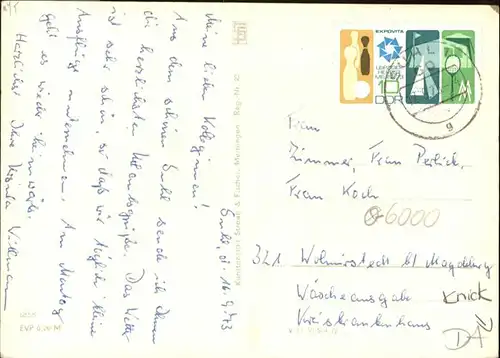 Suhl, d. 16.9.73
Meine lieben Kolleginnen!
Aus dem schönen Suhl sende ich Ihnen
die herzlichsten Urlaubsgrüße. Das Wetter
ist sehr schön, so daß wir täglich kleine
Ausflüge unternehmen. Am Montag
geht es wieder heimwärts.
Herzlichst Ihre
EXPOVITA
LEIPZIGER
HERBST
MESSE
10
DDR
g
Frau
Zimmer, Frau
Frau Koch
06000
321 Wolmirstedt b/ Magdeburg
Wäscheausgabe
Kreiskrankenhaus
Knick
DA
Kunstanstalt Straub & Fischer, Meiningen
EVP 0,20 M